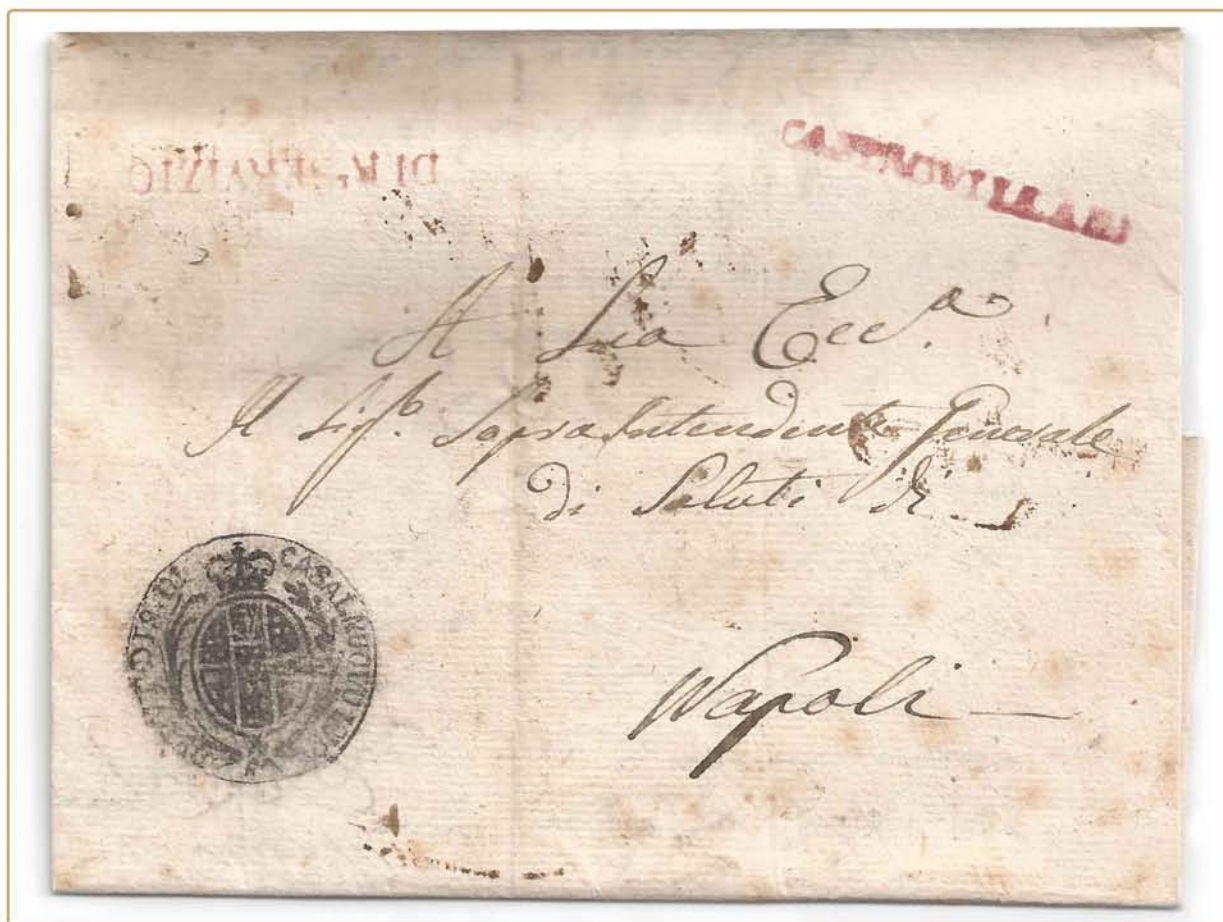 DI R. SERVIZIO
CASTROVILLARI
A Sua Ecc.a
Il Sig.r Soprantendente Generale
di Salute di
Napoli
DI CASALBUONO